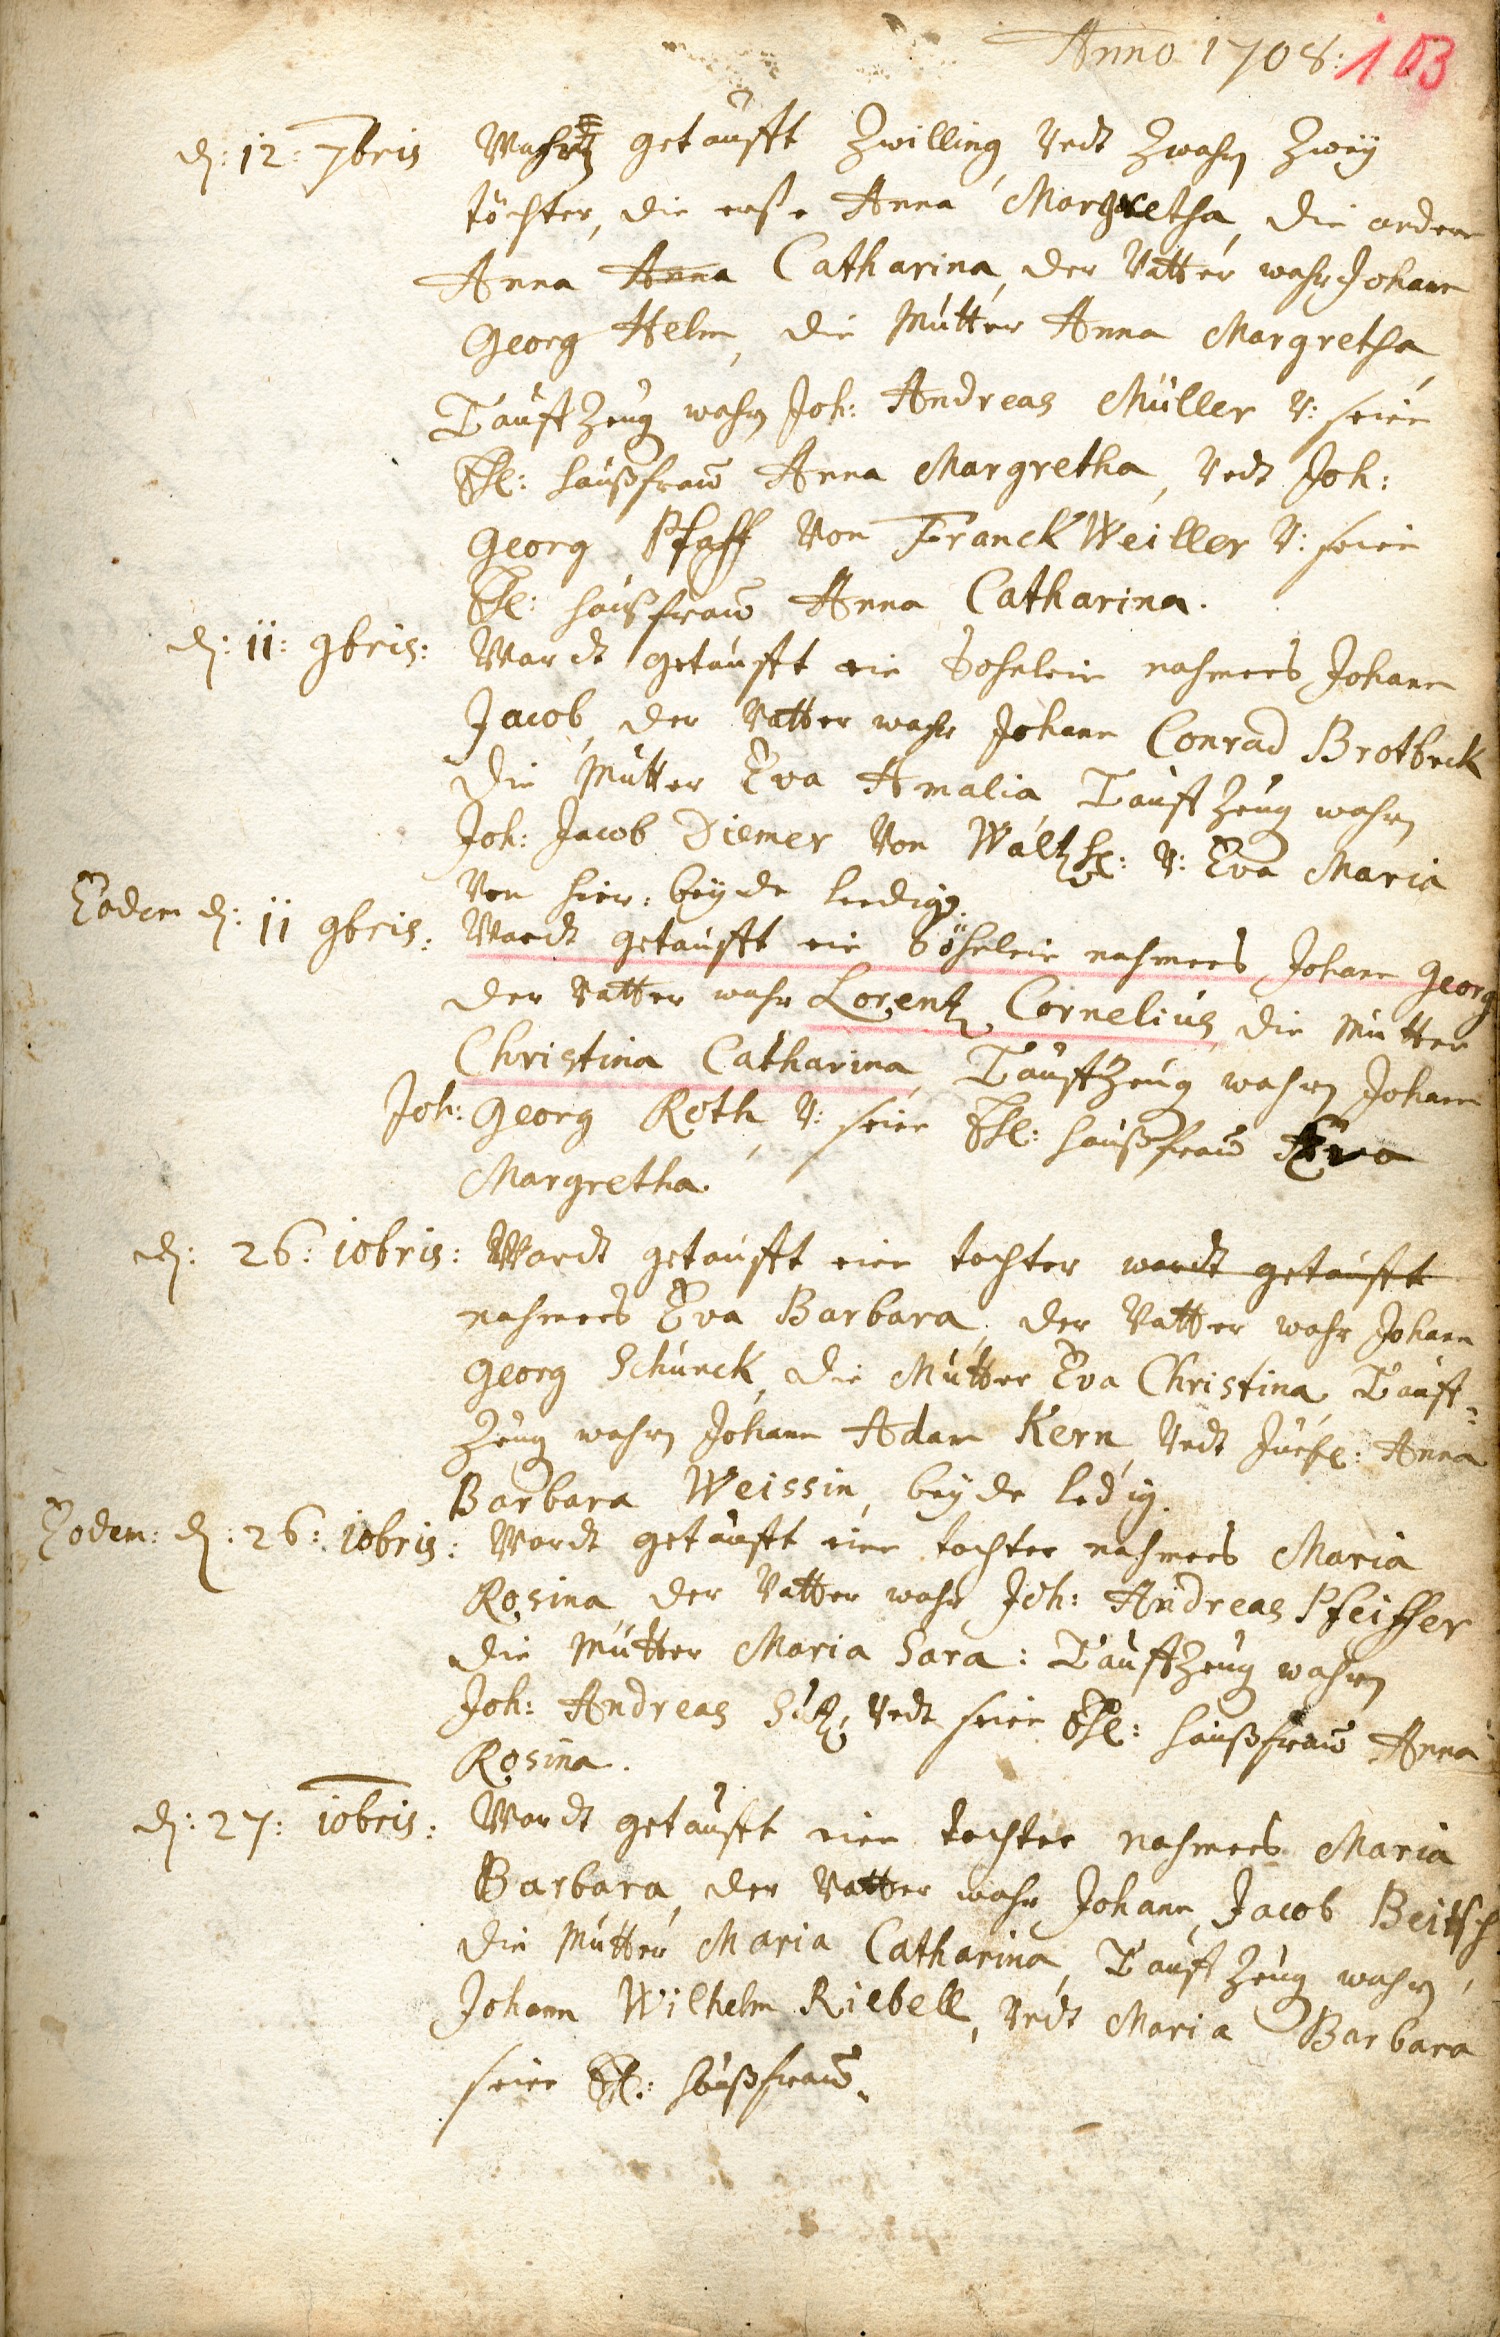 Anno 1708: 103
d: 12: 7bris Wahrn getaufft Zwilling, Undt Zwahrn Zwey
töchter, die erste Anna Margretha, die andere
Anna Anna Catharina, der Vatter wahr Johann
Georg Helm, die Mutter Anna Margretha,
Tauffzeug wahrn Joh: Andreas Müller V: seine
Ehl: Haußfraw Anna Margretha, Undt Joh:
Georg Pfaff Von FranckWeiller V: seine
Ehl: haußfraw Anna Catharina.
d: 11: 9bris: Wardt getaufft ein Sohnlein nahmens Johann
Jacob, der Vatter wahr Johann Conrad Brotbeck
die Mutter Eva Amalia, Tauffzeug wahrn
Joh: Jacob Diemer Von V: Eva Maria
Von hier: beyde leedig.
Eodem d: 11 9bris: Wardt getaufft ein Söhnlein nahmens Johann Georg
der Vatter wahr Lorentz Cornelius, die Mutter
Christina Catharina, Tauffzeug wahrn Johann
Joh: Georg Roth, V: seine Ehl: haußfraw
Margretha.
d: 26: 10bris: Wardt getaufft eine tochter wardt getaufft
nahmens Eva Barbara, der Vatter wahr Johann
Georg Schunck, die Mutter Eva Christina, Tauff-
Zeug wahrn Johann Adam Kern, Undt Jungf: Anna
Barbara Weissin, beyde ledig.
Eodem: d: 26: 10bris: Wardt getaufft eine tochter nahmens Maria
Rosina, der Vatter wahr Joh: Andreas Pfeiffer
die Mutter Maria Sara: Tauffzeug wahrn
Joh: Andreas Undt seine Ehl: haußfraw Anna
Rosina.
d: 27: 10bris: Wardt getaufft eine tochter nahmens Maria
Barbara, der Vatter wahr Johann Jacob Beitsch
die Mutter Maria Catharina, Tauffzeug wahrn,
Johann Wilhelm Riebell, Undt Maria Barbara
seine Ehl: haußfraw.